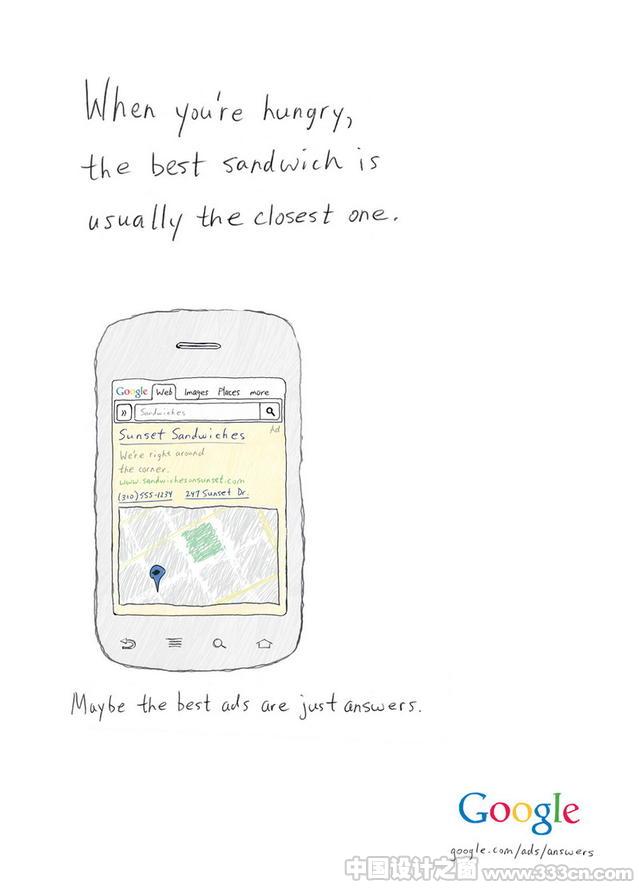 When you're hungry,
the best sandwich is
usually the closest one.
Google Web Images Places more
» Sandwiches
Sunset Sandwiches Ad
We're right around
the corner.
www.sandwichesonsunset.com
(310)555-1234 247 Sunset Dr.
Maybe the best ads are just answers.
Google
google.com/ads/answers
中国设计之窗 www.333cn.com